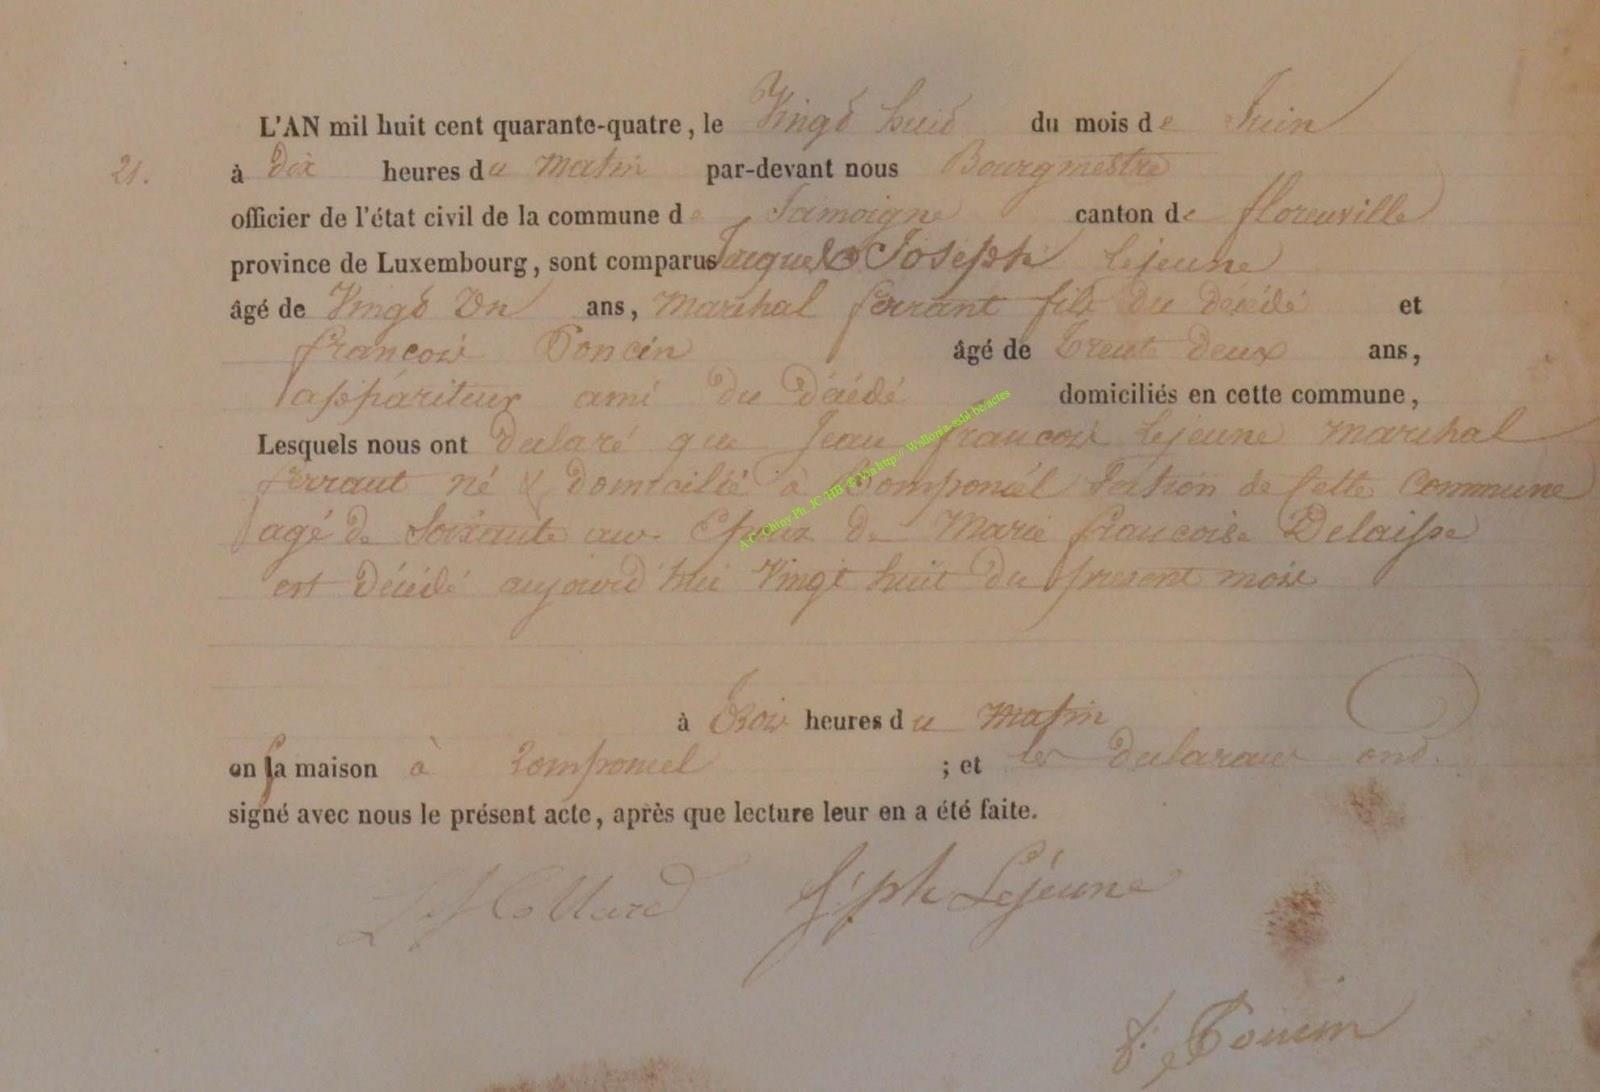 L'AN mil huit cent quarante-quatre, le Vingt huit du mois de Juin
21. à dix heures du matin par-devant nous Bourgmestre
officier de l'état civil de la commune de Jamoigne canton de florenville
province de Luxembourg, sont comparus Jacques Joseph Lejeune
âgé de Vingt Un ans, Marechal ferrant fils du décédé et
francois Poncin âgé de Trente deux ans,
appariteur ami du décédé domiciliés en cette commune,
Lesquels nous ont declaré que Jean francois Lejeune Marechal
ferrant né & domicilié à Romponcel section de Cette Commune
agé de Soixante ans Epoux de Marie francoise Delaisse
est décédé aujourd'hui Vingt huit du present mois
à Trois heures du Matin
en sa maison à Romponcel ; et les declarans ont
signé avec nous le présent acte, après que lecture leur en a été faite.
Collard Jsph Lejeune
f. Poncin
A.C. Chiny Ph. JC HB © Via http:// Wallonia-asbl-be/actes